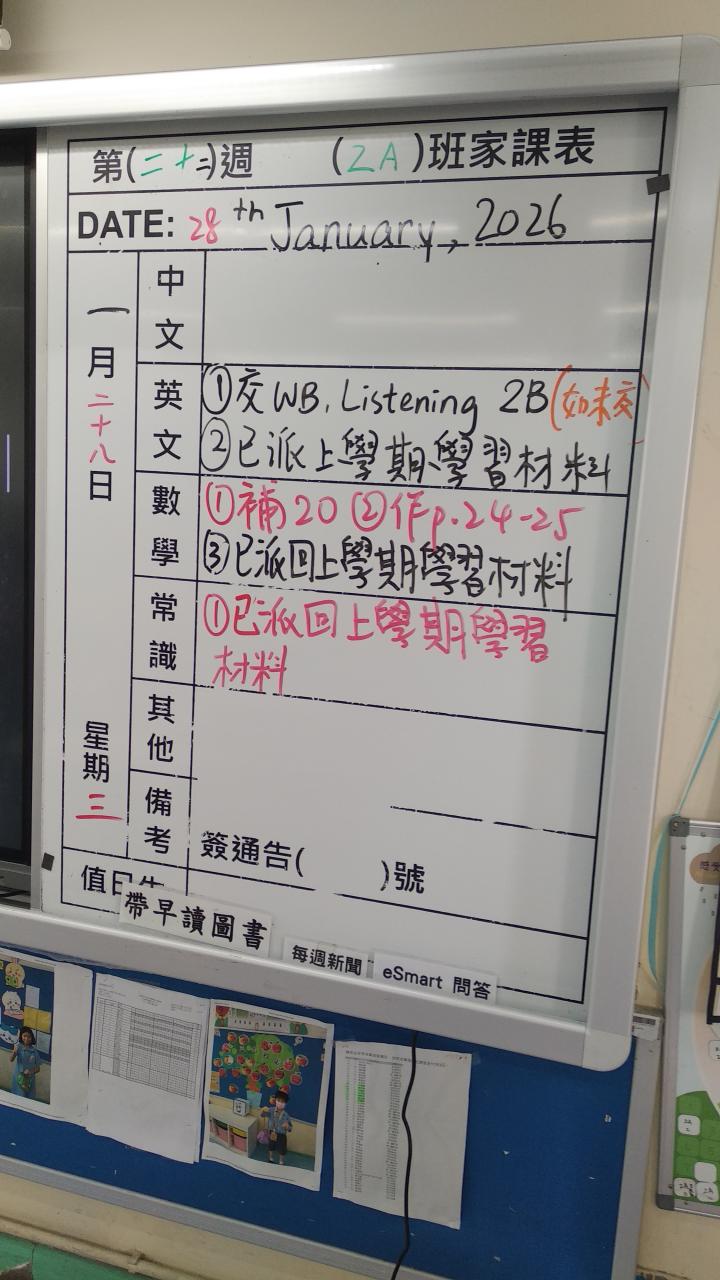 第(二十二)週 (2A)班家課表
DATE: 28th January, 2026
一月二十八日
星期三
中文
英文
①交WB, Listening 2B(如未交)
②已派上學期學習材料
數學
①補20 ②作p.24-25
③已派回上學期學習材料
常識
①已派回上學期學習
材料
其他
備考
簽通告( )號
值日生
帶早讀圖書
每週新聞
eSmart 問答